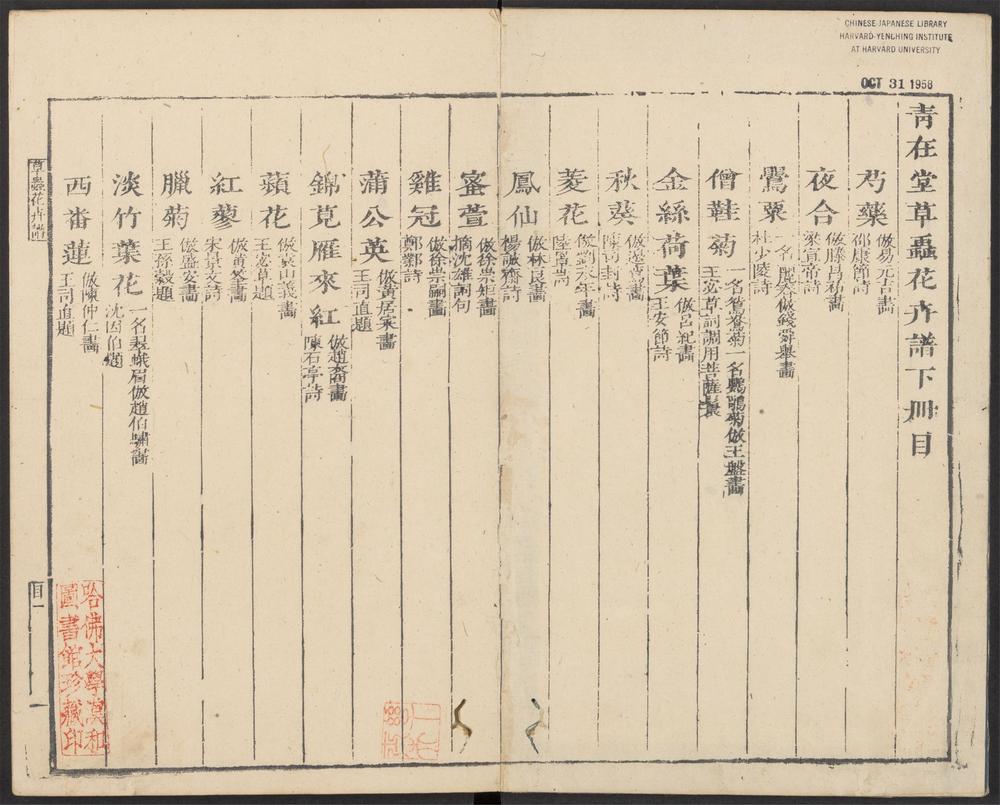 CHINESE-JAPANESE LIBRARY
HARVARD-YENCHING INSTITUTE
AT HARVARD UNIVERSITY
OCT 31 1958
靑在堂草蟲花卉譜下冊目
芍藥
倣易元吉畫
邵康節詩
夜合
倣滕昌祐畫
梁宣帝詩
鶯粟
一名麗春倣錢舜舉畫
杜少陵詩
僧鞋菊
一名鴛鴦菊一名鸚鵡菊倣王盤畫
王宓草詞調用菩薩蠻
金絲荷葉
倣呂紀畫
王安節詩
秋葵
詩
菱花
倣劉永年畫
鳳仙
倣林良畫
楊誠齋詩
蜜萱
倣徐崇矩畫
摘沈雄詞句
雞冠
倣徐崇嗣畫
鄭鄴詩
蒲公英
倣黃居寀畫
王司直題
錦莧雁來紅
倣趙裔畫
陳石亭詩
蘋花
王宓草題
紅蓼
倣黃筌畫
宋景文詩
臘菊
倣盛安畫
王孫穀題
淡竹葉花
一名翠蛾眉倣趙伯驌畫
沈因伯題
西番蓮
倣陳仲仁畫
王司直題
草蟲花卉譜
目一
哈佛大學漢和
圖書館珍藏印